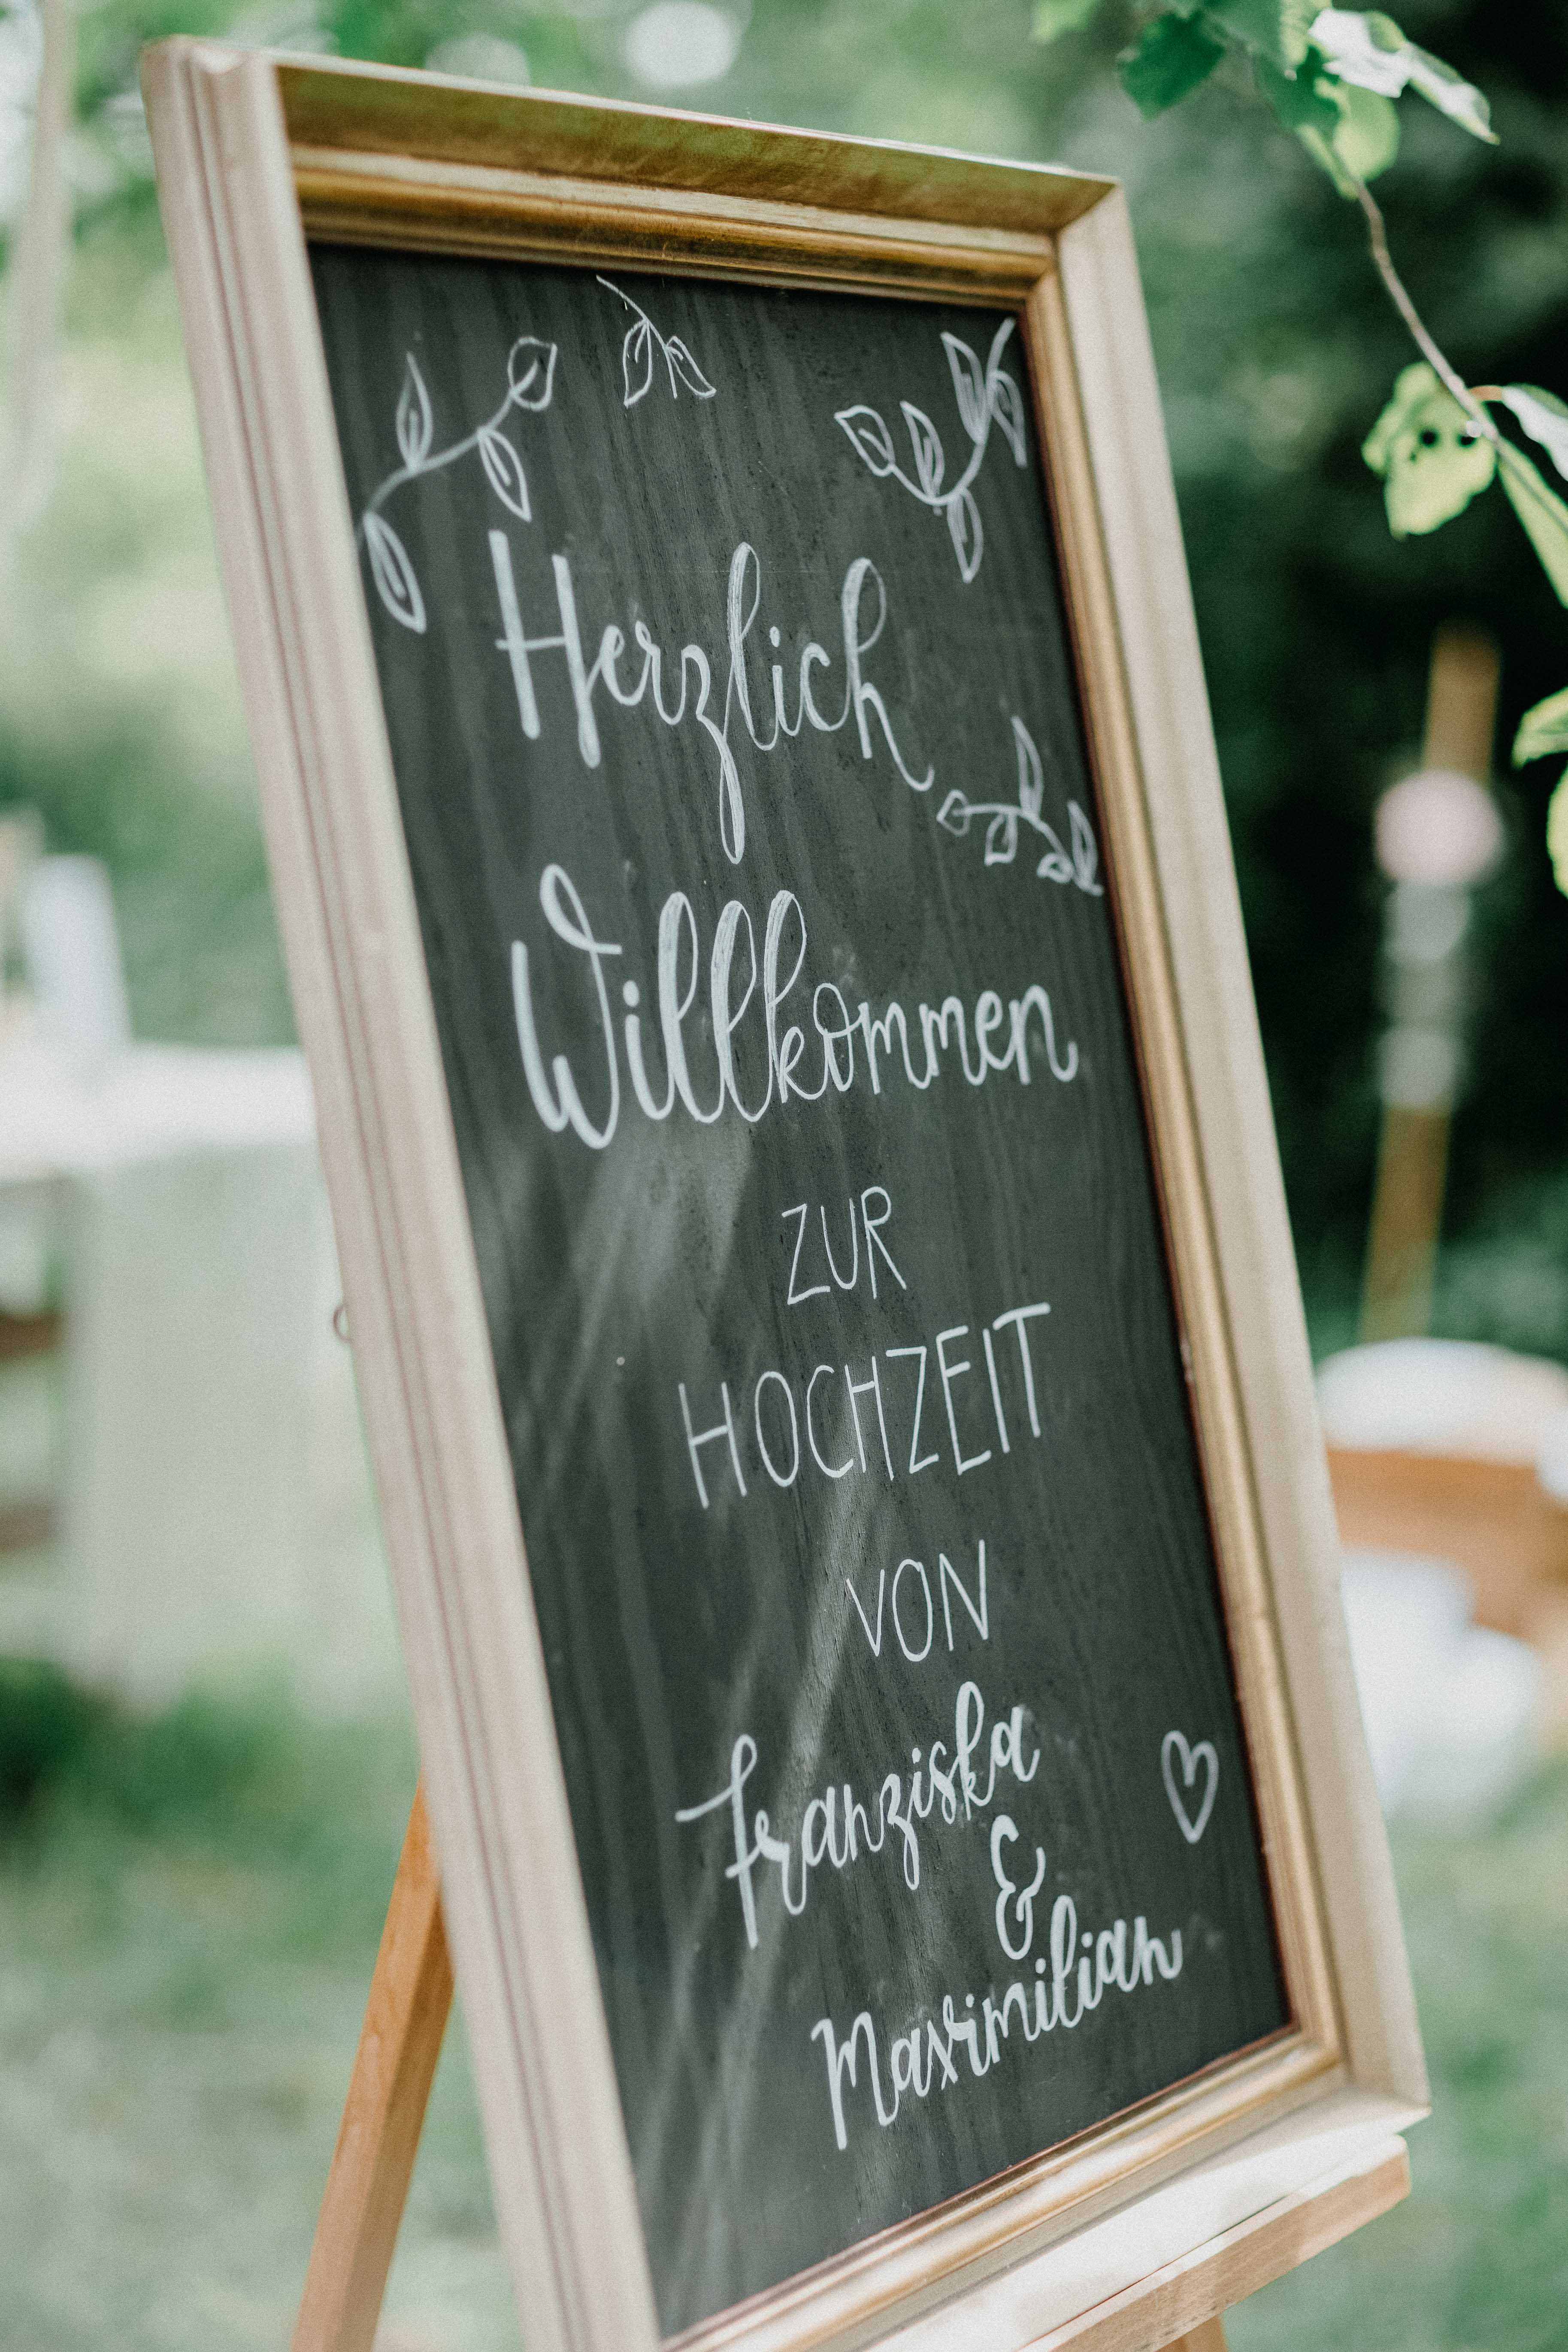 Herzlich
Willkommen
ZUR
HOCHZEIT
VON
Franziska
&
Maximilian